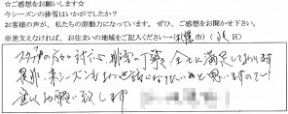 ☆ご感想をお願いします☆
今シーズンの排雪はいかがでしたか?
お客様の声が、私たちの原動力になっています。ぜひ、ご感想をお聞かせ下さい。
※差支えなければ、お住まいの地域をご記入ください→(札幌市)( 区)
スタッフの方々の対応、排雪の丁寧、全てに満足しております
是非、来シーズンもお世話になりたいと思いますので
宜しくお願い致します